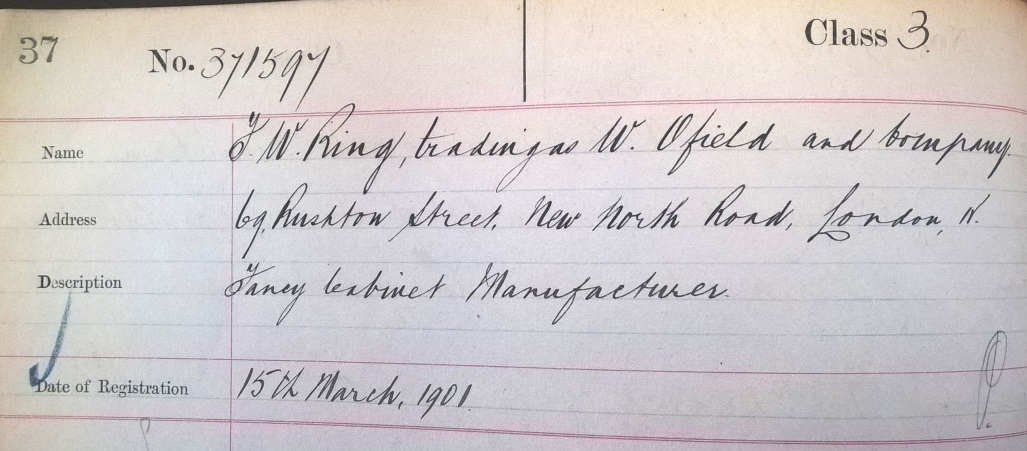 37
No. 371597
Class 3.
Name F. W. Ring, trading as W. Ofield and Company.
Address 69, Rushton Street, New North Road, London, N.
Description Fancy Cabinet Manufacturer.
Date of Registration 15th March, 1901.